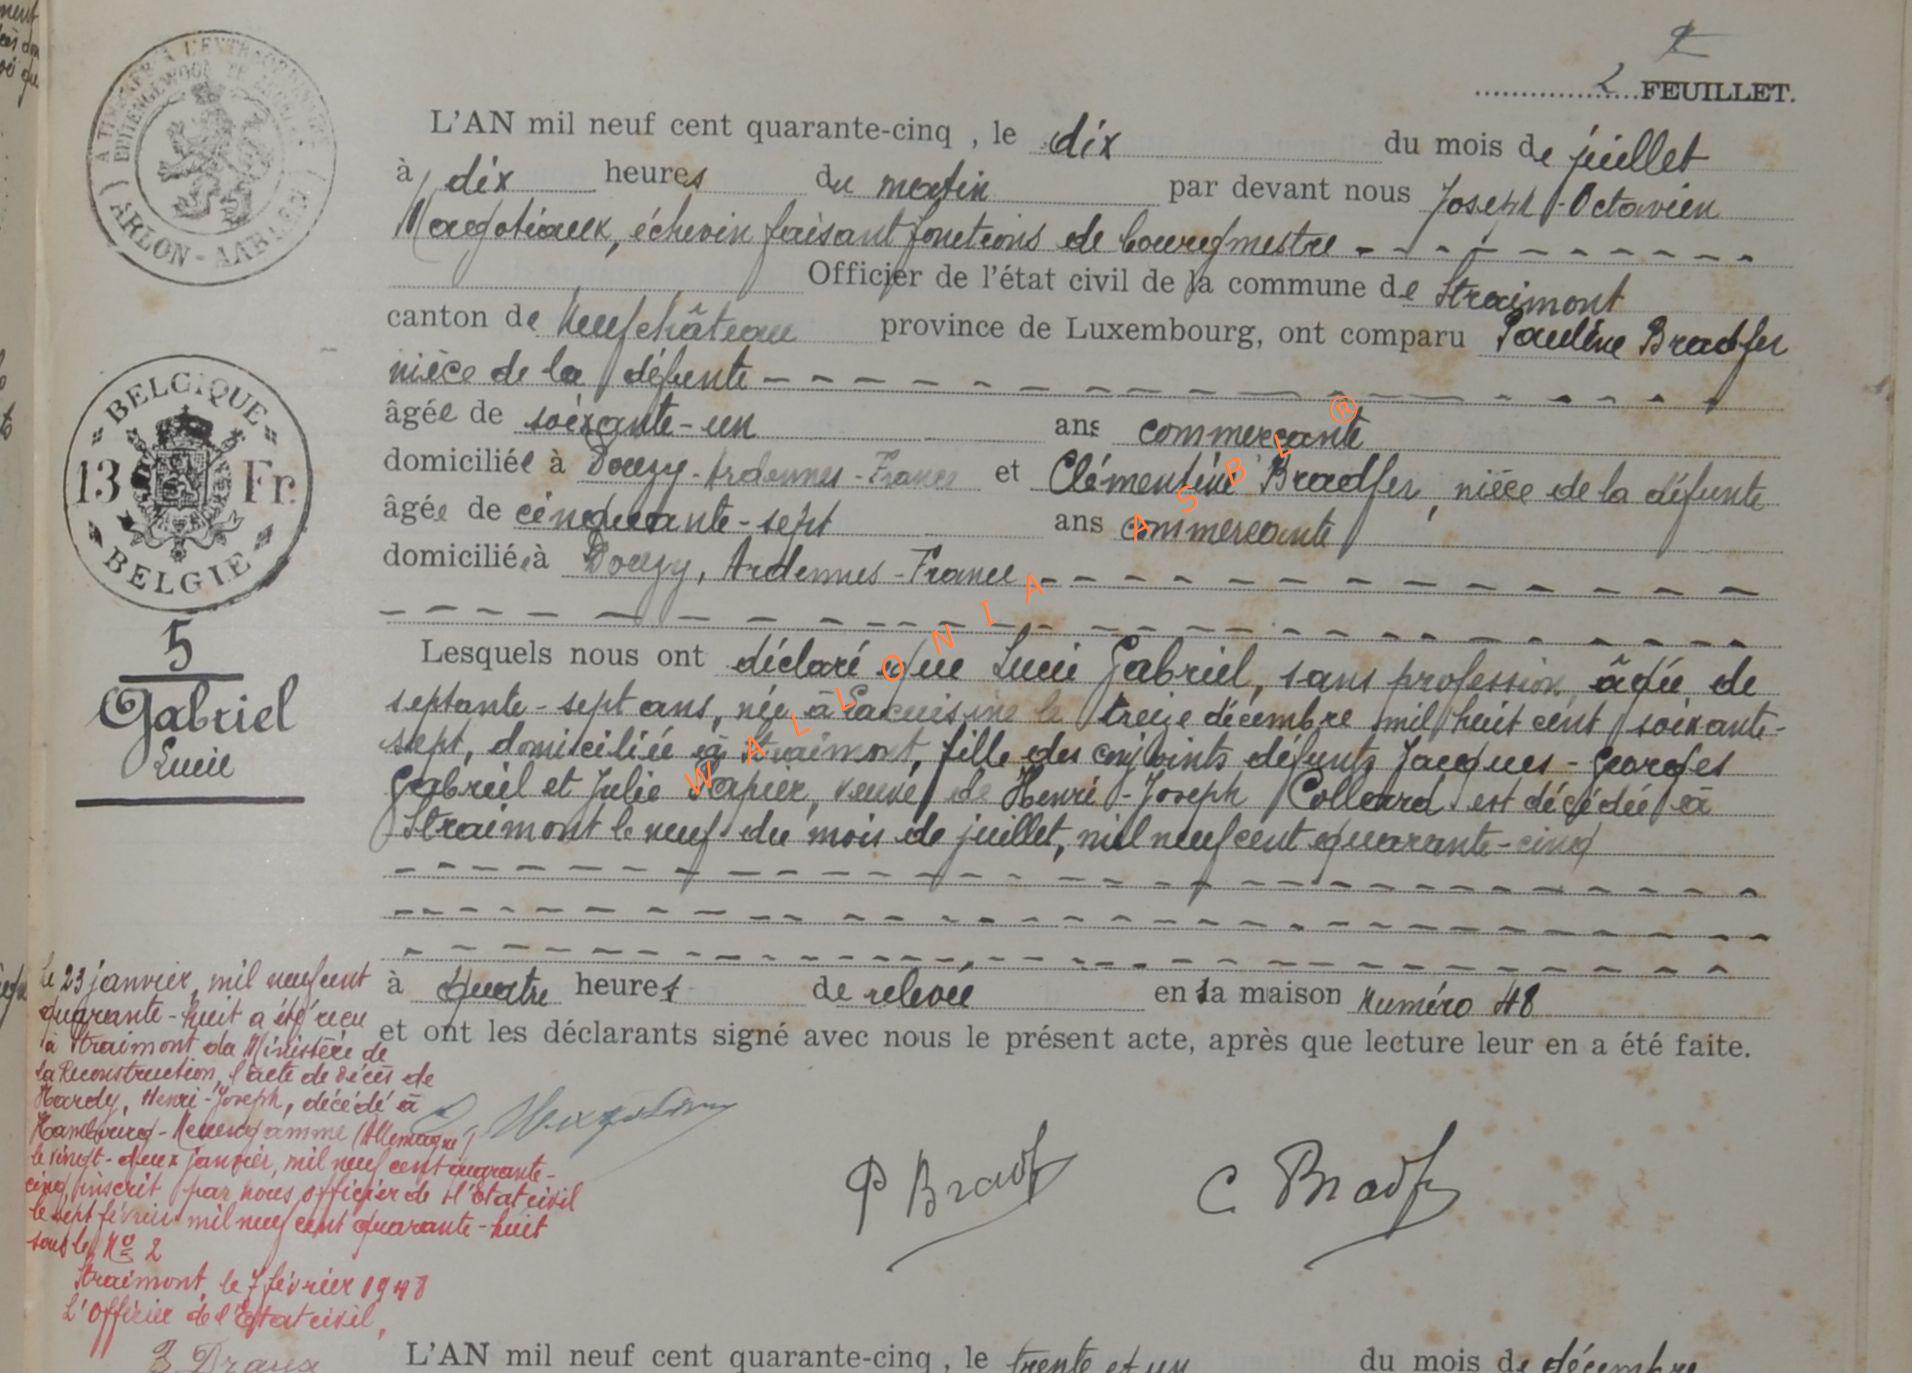 2 FEUILLET.
L'AN mil neuf cent quarante-cinq , le dix du mois de juillet
à dix heures du matin par devant nous Joseph-Octavien
Margotiaux, échevin faisant fonctions de bourgmestre
Officier de l'état civil de la commune de Straimont
canton de Neufchâteau province de Luxembourg, ont comparu Pauline Bradfer
nièce de la défunte
âgée de soixante-un ans commerçante
domiciliée à Douzy-Ardennes-France et Clémentine Bradfer, nièce de la défunte
âgée de cinquante-sept ans commerçante
domiciliée à Douzy, Ardennes-France
Lesquels nous ont déclaré que Lucie Gabriel, sans profession âgée de
septante-sept ans, née à Lacuisine le treize décembre mil huit cent soixante-
sept, domiciliée à Straimont, fille des conjoints défunts Jacques-Georges
Gabriel et Julie Papier, veuve de Henri-Joseph Collard est décédée à
Straimont le neuf du mois de juillet, mil neuf cent quarante-cinq
à quatre heures de relevée en sa maison numéro 48
et ont les déclarants signé avec nous le présent acte, après que lecture leur en a été faite.
P Bradf C Bradf
ARLON - AARLEN
BELGIQUE
13 Fr.
BELGIE
5
Gabriel
Lucie
Le 23 janvier, mil neuf cent
quarante-huit a été reçu
à Straimont du Ministère de
la Reconstruction, l'acte de décès de
Hardy, Henri-Joseph, décédé à
Hambourg-Neuengamme (Allemagne)
le vingt-deux janvier, mil neuf cent quarante-
cinq, inscrit par nous officier de l'Etat civil
le sept février mil neuf cent quarante-huit
sous le No 2
Straimont, le 7 février 1948
L'Officier de l'Etat civil,
L'AN mil neuf cent quarante-cinq , le trente et un du mois de décembre
WALLONIA ASBL ®